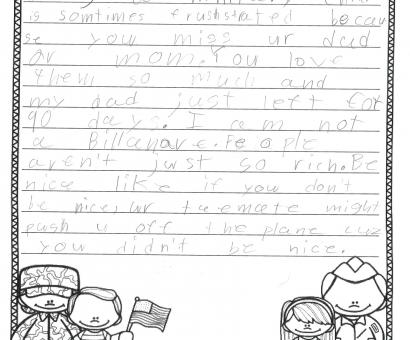 is somtimes frushstrated becau
se you miss ur dad
or mom. You love
them so much and
my dad just left for
90 days. I am not
a Billanare. People
aren't just so rich. Be
nice like if you don't
be nice, ur teemate might
push u off the plane cuz
you didn't be nice.